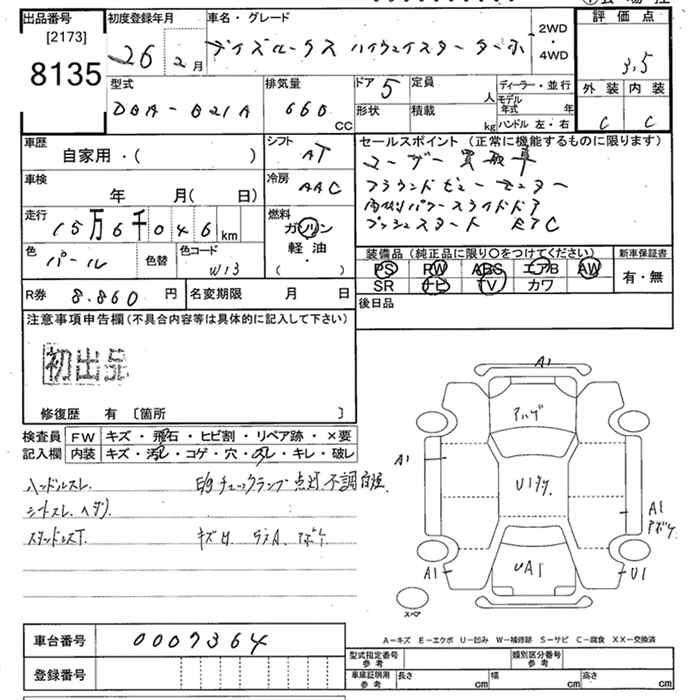 出品番号
[2173]
8135
初度登録年月
26年2月
車名・グレード
デイズルークス ハイウェイスターターボ
2WD
・
4WD
評価点
3.5
外装 内装
C C
型式
DBA-B21A
排気量
660
CC
ドア 5
形状
定員
人
積載
kg
ディーラー・並行
モデル年式 年
ハンドル 左・右
車歴
自家用・( )
シフト
AT
車検
年 月( 日)
冷房
AAC
走行
15万6千046km
燃料
ガソリン
軽油
( ・ )
色
パール
色替
色コード
W13
セールスポイント (正常に機能するものに限ります)
ユーザー買取車
アラウンドビューモニター
両側パワースライドドア
プッシュスタート ETC
装備品 (純正品に限り〇をつけてください)
PS PW ABS エアB AW
SR ナビ TV カワ
新車保証書
有・無
後日品
R券 8.860円
名変期限 月 日
注意事項申告欄 (不具合内容等は具体的に記入して下さい)
初出品
修復歴 有 〔箇所 〕
検査員記入欄
FW キズ・飛石・ヒビ割・リペア跡・×要
内装 キズ・汚レ・コゲ・穴・スレ・キレ・破レ
ハンドルスレ
E/gチェックランプ点灯 不調
シートスレ
キズ
A1
A1
A1
U1
A1
UA1
スペア
A-キズ E-エクボ U-凹み W-補修跡 S-サビ C-腐食 XX-交換済
車台番号
0007364
登録番号
型式指定番号
参考
類別区分番号
参考
車庫証明用
参考
長さ cm
幅 cm
高さ cm